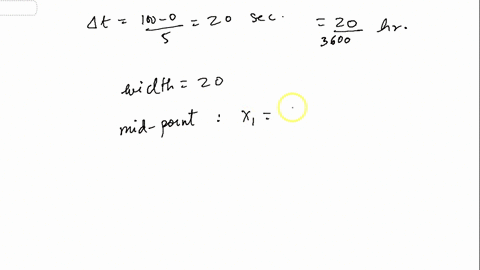 Δt = 100-0/5 = 20 sec. = 20/3600 hr.
width = 20
mid-point : x₁ =